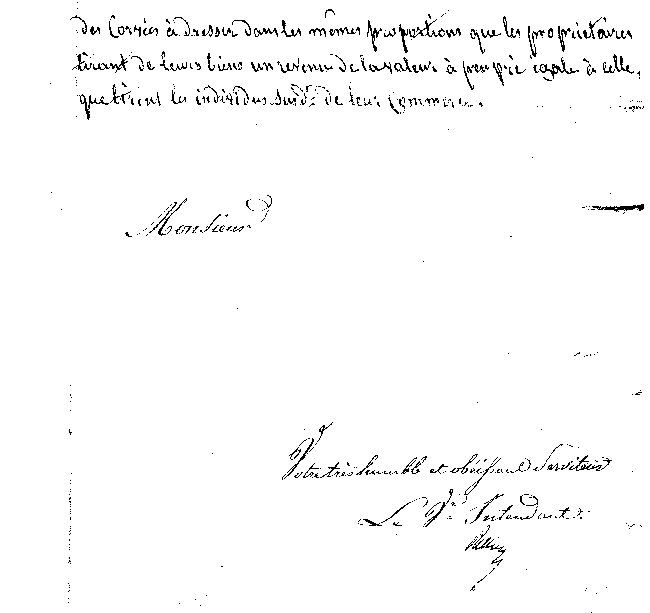 des Corvées à dresser dans les mêmes proportions que les propriétaires
tirant de leurs biens un revenu de la valeur à peu près égale à celle,
que tirent les individus susd.s de leur Commerce.
Monsieur
Votre très humble et obéissant Serviteur
Le Intendant